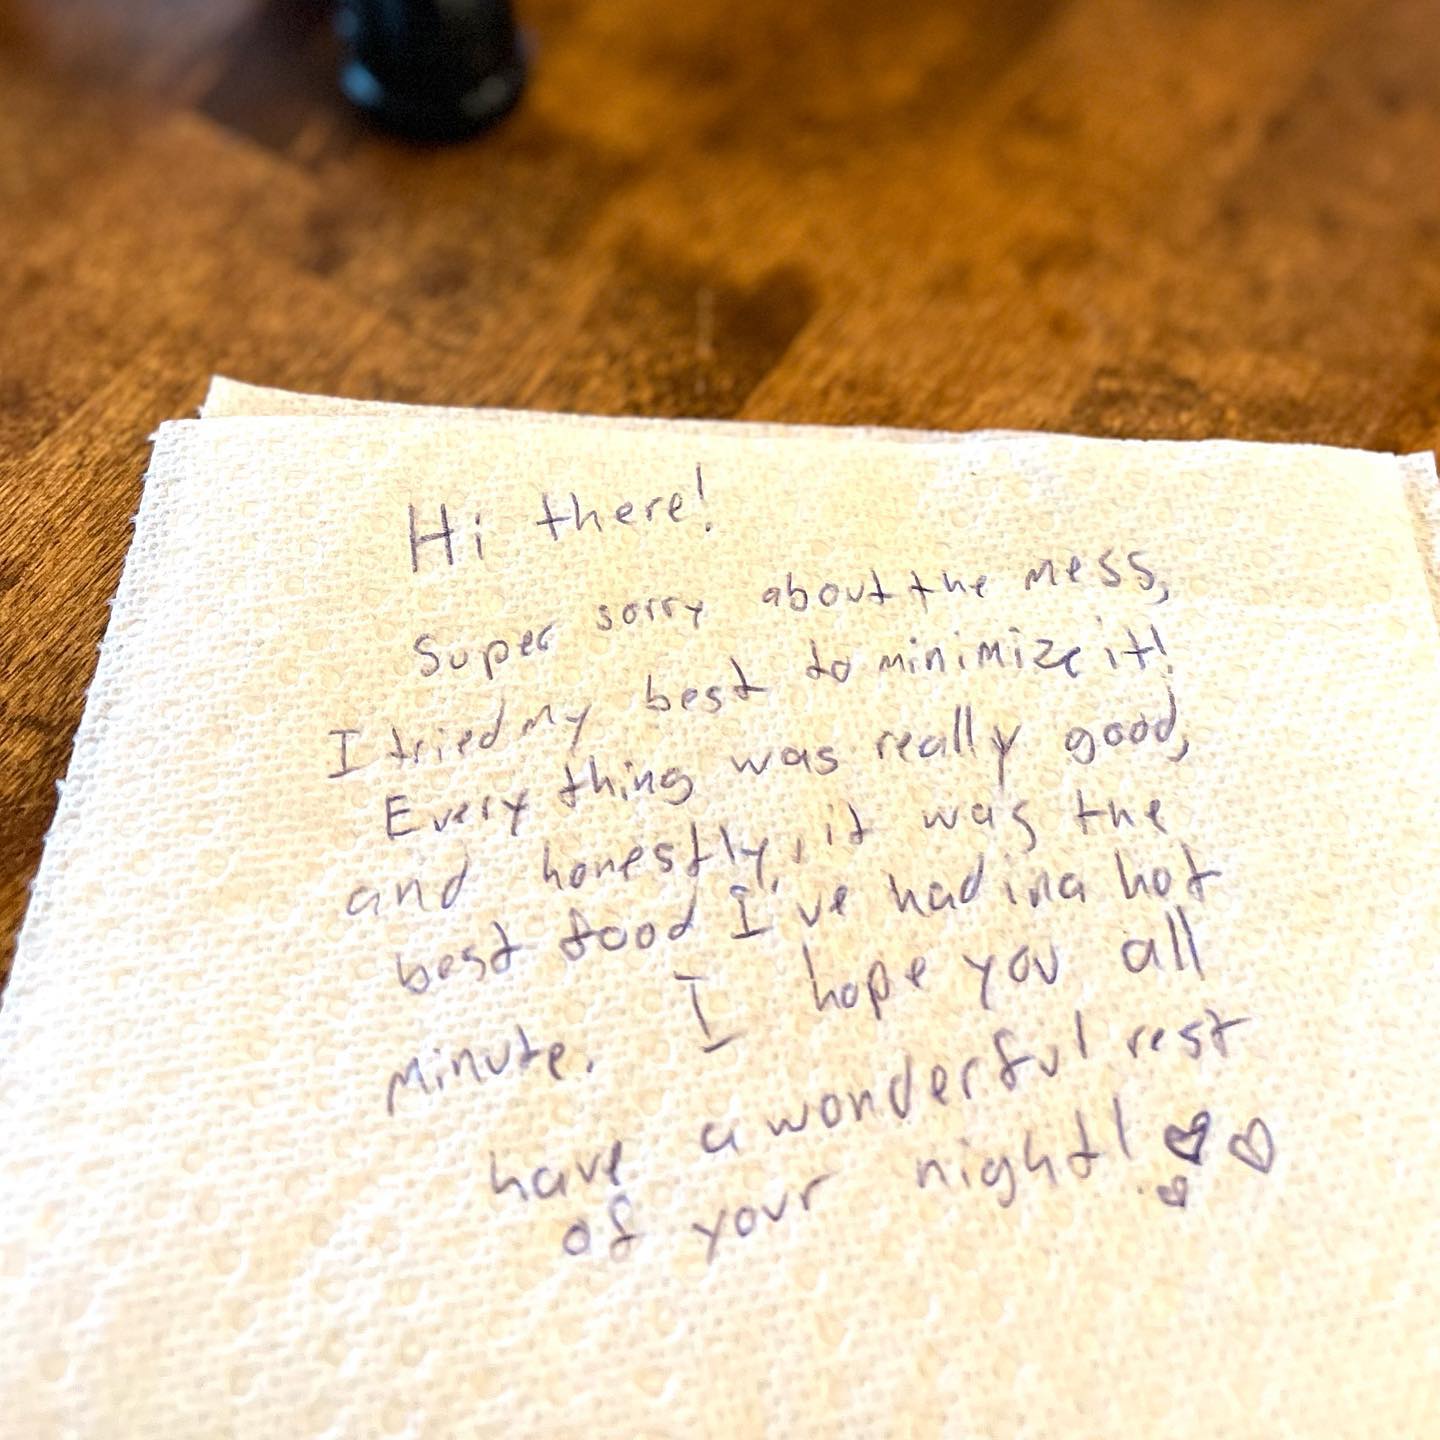 Hi there!
Super sorry about the mess,
I tried my best to minimize it!
Every thing was really good,
and honestly, it was the
best food I've had in a hot
minute. I hope you all
have a wonderful rest
of your night!